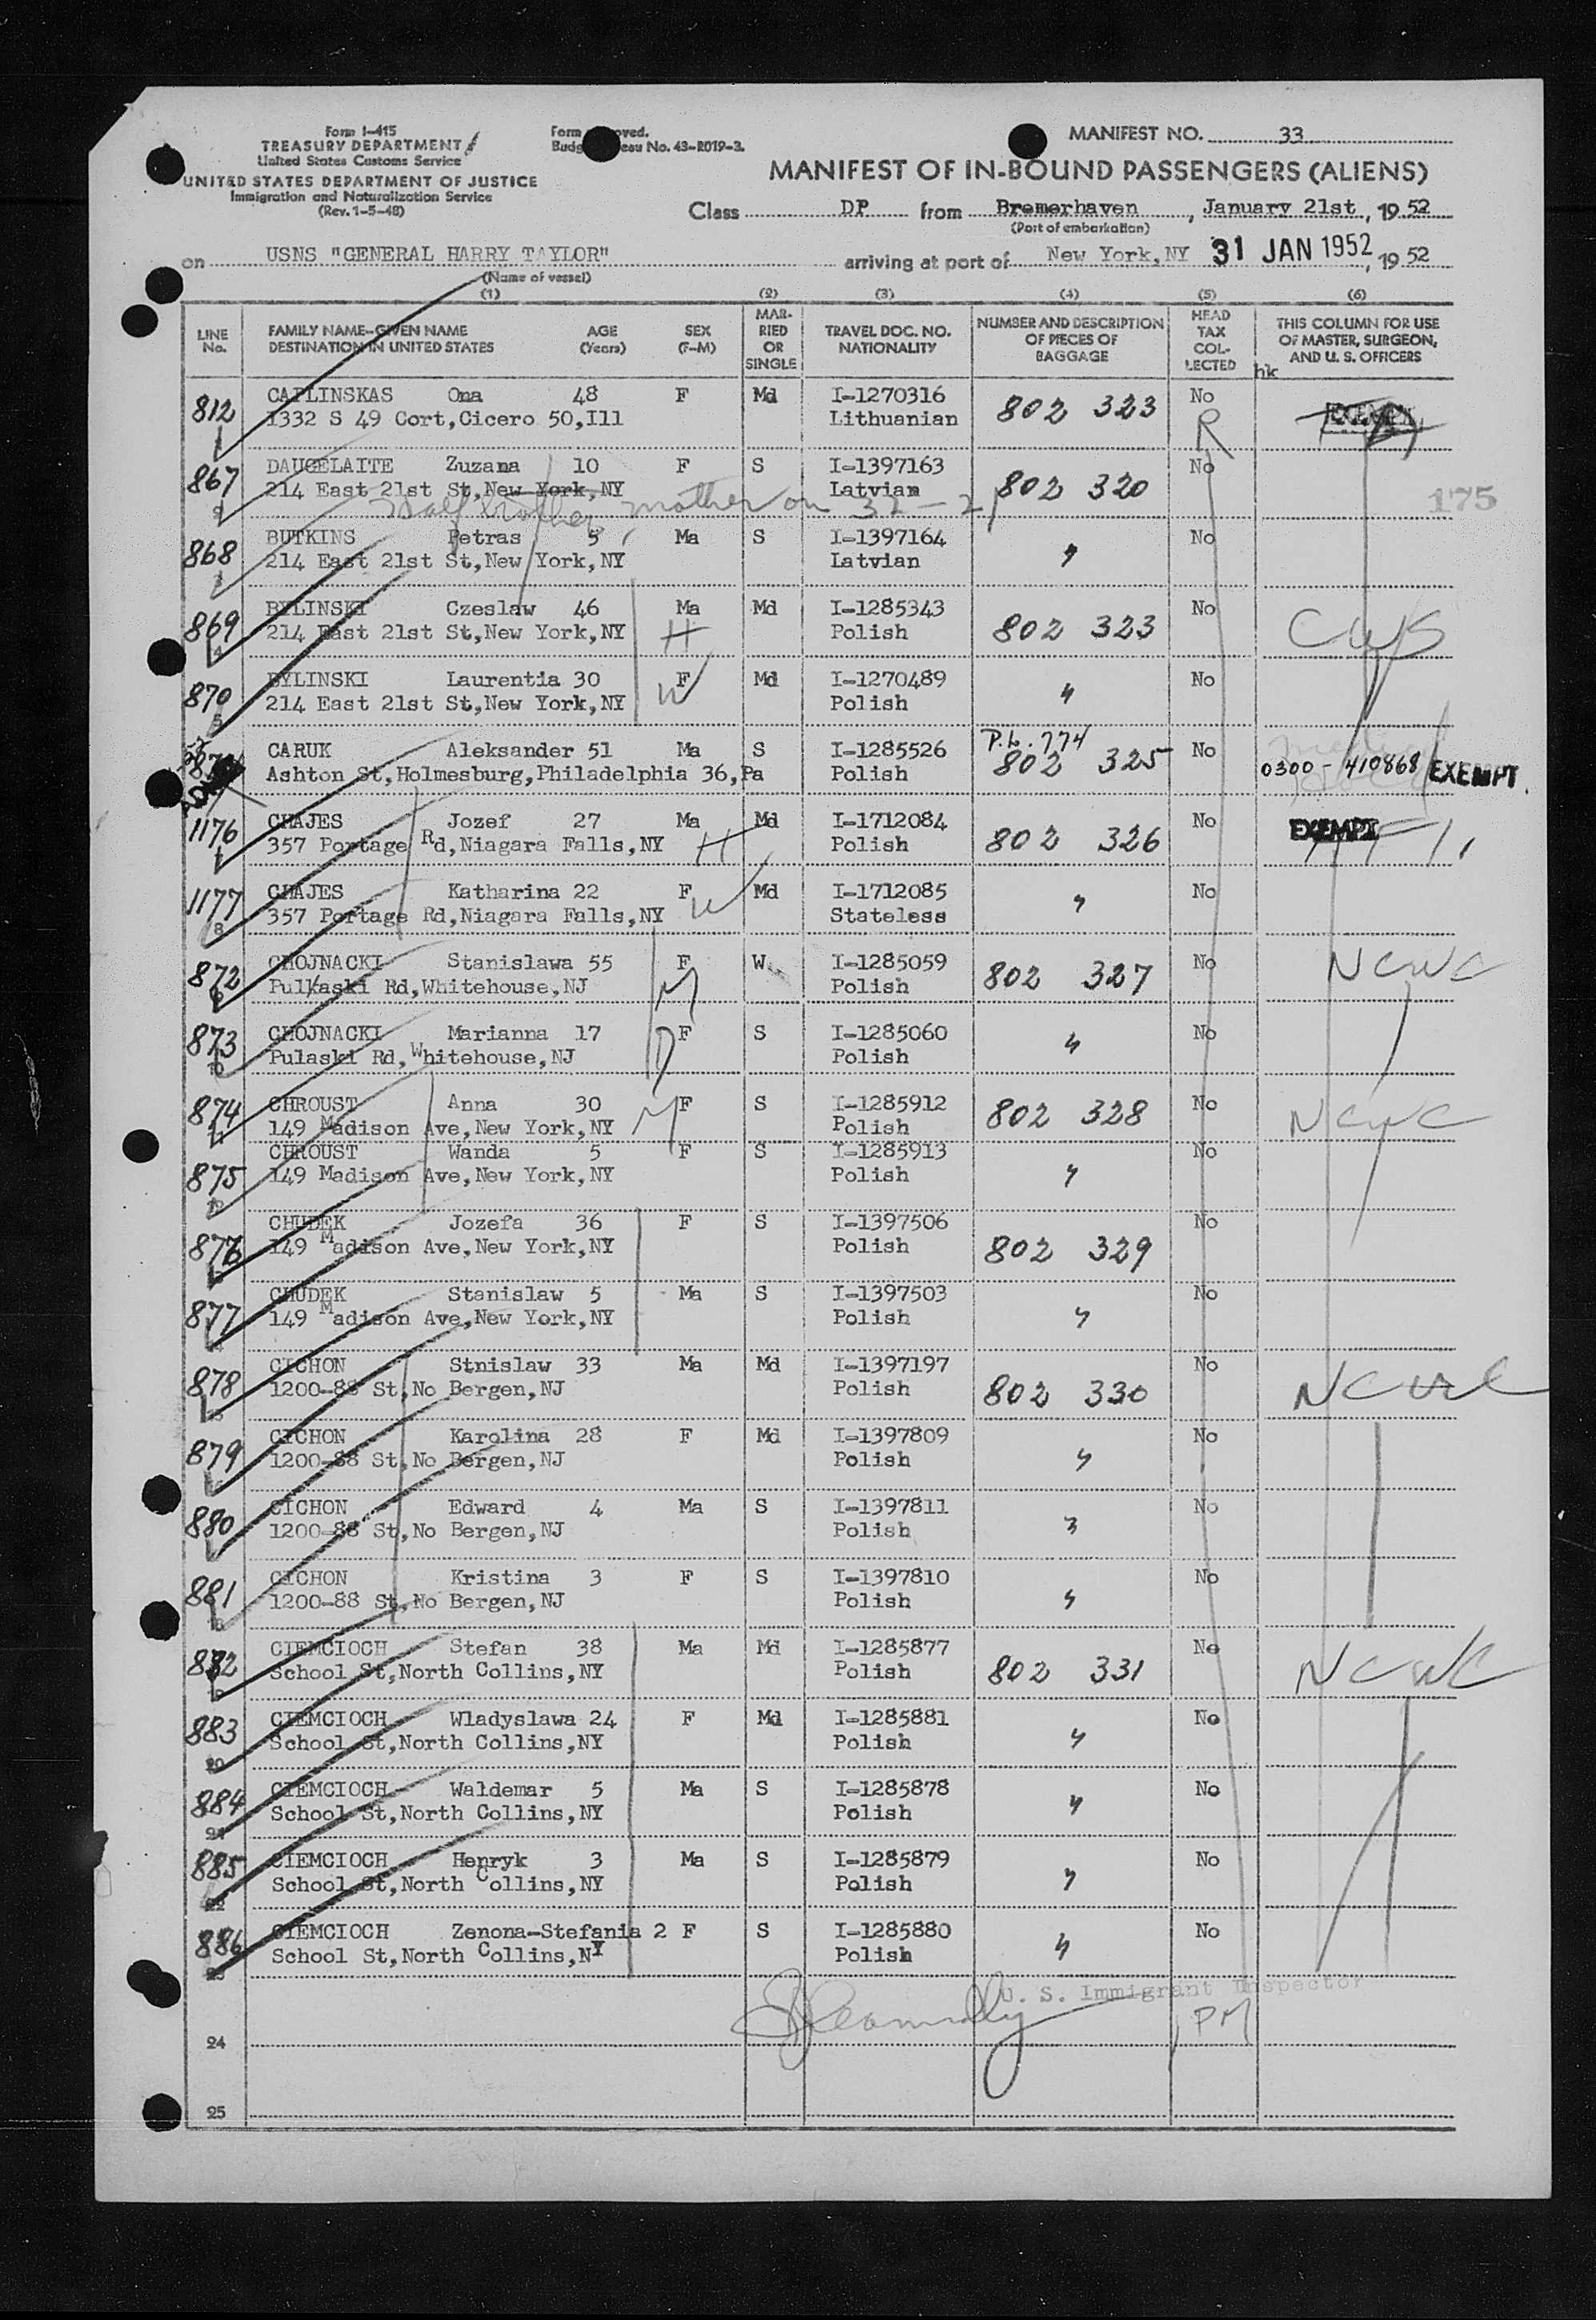 Form I-415
TREASURY DEPARTMENT
United States Customs Service
UNITED STATES DEPARTMENT OF JUSTICE
Immigration and Naturalization Service
(Rev. 1-5-48)
Form oved.
Budg eau No. 43-R019-3.
MANIFEST NO. 33
MANIFEST OF IN-BOUND PASSENGERS (ALIENS)
Class DP from Bremerhaven, January 21st, 1952
(Port of embarkation)
on USNS "GENERAL HARRY TAYLOR" arriving at port of New York, NY 31 JAN 1952, 1952
(Name of vessel)
(1) (2) (3) (4) (5) (6)
LINE No. FAMILY NAME-GIVEN NAME DESTINATION IN UNITED STATES AGE (Years) SEX (F-M) MARRIED OR SINGLE TRAVEL DOC. NO. NATIONALITY NUMBER AND DESCRIPTION OF PIECES OF BAGGAGE HEAD TAX COLLECTED THIS COLUMN FOR USE OF MASTER, SURGEON, AND U. S. OFFICERS
hk
812 CAPLINSKAS Ona 48 F Md I-1270316 802 323 No EXEMPT
1332 S 49 Cort,Cicero 50,Ill Lithuanian R
867 DAUGELAITE Zuzana 10 F S I-1397163 802 320 No
214 East 21st St,New York,NY Latvian 175
Half brother, mother on 32-21
868 BUTKINS Petras 5 Ma S I-1397164 " No
214 East 21st St,New York,NY Latvian
869 BYLINSKI Czeslaw 46 Ma Md I-1285343 802 323 No CWS
214 East 21st St,New York,NY H Polish
870 BYLINSKI Laurentia 30 F Md I-1270489 " No
214 East 21st St,New York,NY W Polish
CARUK Aleksander 51 Ma S I-1285526 P.L. 774 802 325 No
Ashton St,Holmesburg,Philadelphia 36,Pa Polish 0300 - 410868 EXEMPT
1176 CHAJES Jozef 27 Ma Md I-1712084 802 326 No EXEMPT
357 Portage Rd,Niagara Falls,NY H Polish
1177 CHAJES Katharina 22 F Md I-1712085 " No
357 Portage Rd,Niagara Falls,NY W Stateless
872 CHOJNACKI Stanislawa 55 F W I-1285059 802 327 No NCWC
Pulkaski Rd,Whitehouse,NJ M Polish
873 CHOJNACKI Marianna 17 F S I-1285060 " No
Pulaski Rd,Whitehouse,NJ D Polish
874 CHROUST Anna 30 F S I-1285912 802 328 No NCWC
149 Madison Ave,New York,NY M Polish
875 CHROUST Wanda 5 F S I-1285913 " No
149 Madison Ave,New York,NY Polish
876 CHUDEK Jozefa 36 F S I-1397506 802 329 No
149 Madison Ave,New York,NY Polish
877 CHUDEK Stanislaw 5 Ma S I-1397503 " No
149 Madison Ave,New York,NY Polish
878 CICHON Stnislaw 33 Ma Md I-1397197 802 330 No NCWC
1200-88 St,No Bergen,NJ Polish
879 CICHON Karolina 28 F Md I-1397809 " No
1200-88 St,No Bergen,NJ Polish
880 CICHON Edward 4 Ma S I-1397811 " No
1200-88 St,No Bergen,NJ Polish
881 CICHON Kristina 3 F S I-1397810 " No
1200-88 St,No Bergen,NJ Polish
882 CIEMCIOCH Stefan 38 Ma Md I-1285877 802 331 No NCWC
School St,North Collins,NY Polish
883 CIEMCIOCH Wladyslawa 24 F Md I-1285881 " No
School St,North Collins,NY Polish
884 CIEMCIOCH Waldemar 5 Ma S I-1285878 " No
School St,North Collins,NY Polish
885 CIEMCIOCH Henryk 3 Ma S I-1285879 " No
School St,North Collins,NY Polish
886 CIEMCIOCH Zenona-Stefania 2 F S I-1285880 " No
School St,North Collins,NY Polish
U. S. Immigrant Inspector
PM
24
25